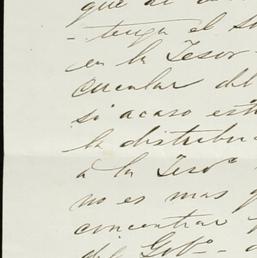 que al
-tenga el
en la Tesor
cular del
si acaso est
la distribu
a la Tesoª
no es mas q
concentrar
del Gobº